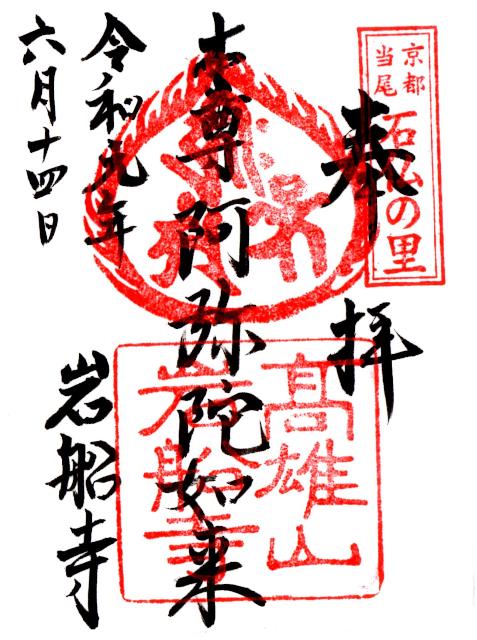 京都
当尾
石仏の里
奉拝
本尊阿弥陀如来
令和元年
六月十四日
岩船寺
高雄山
岩船寺